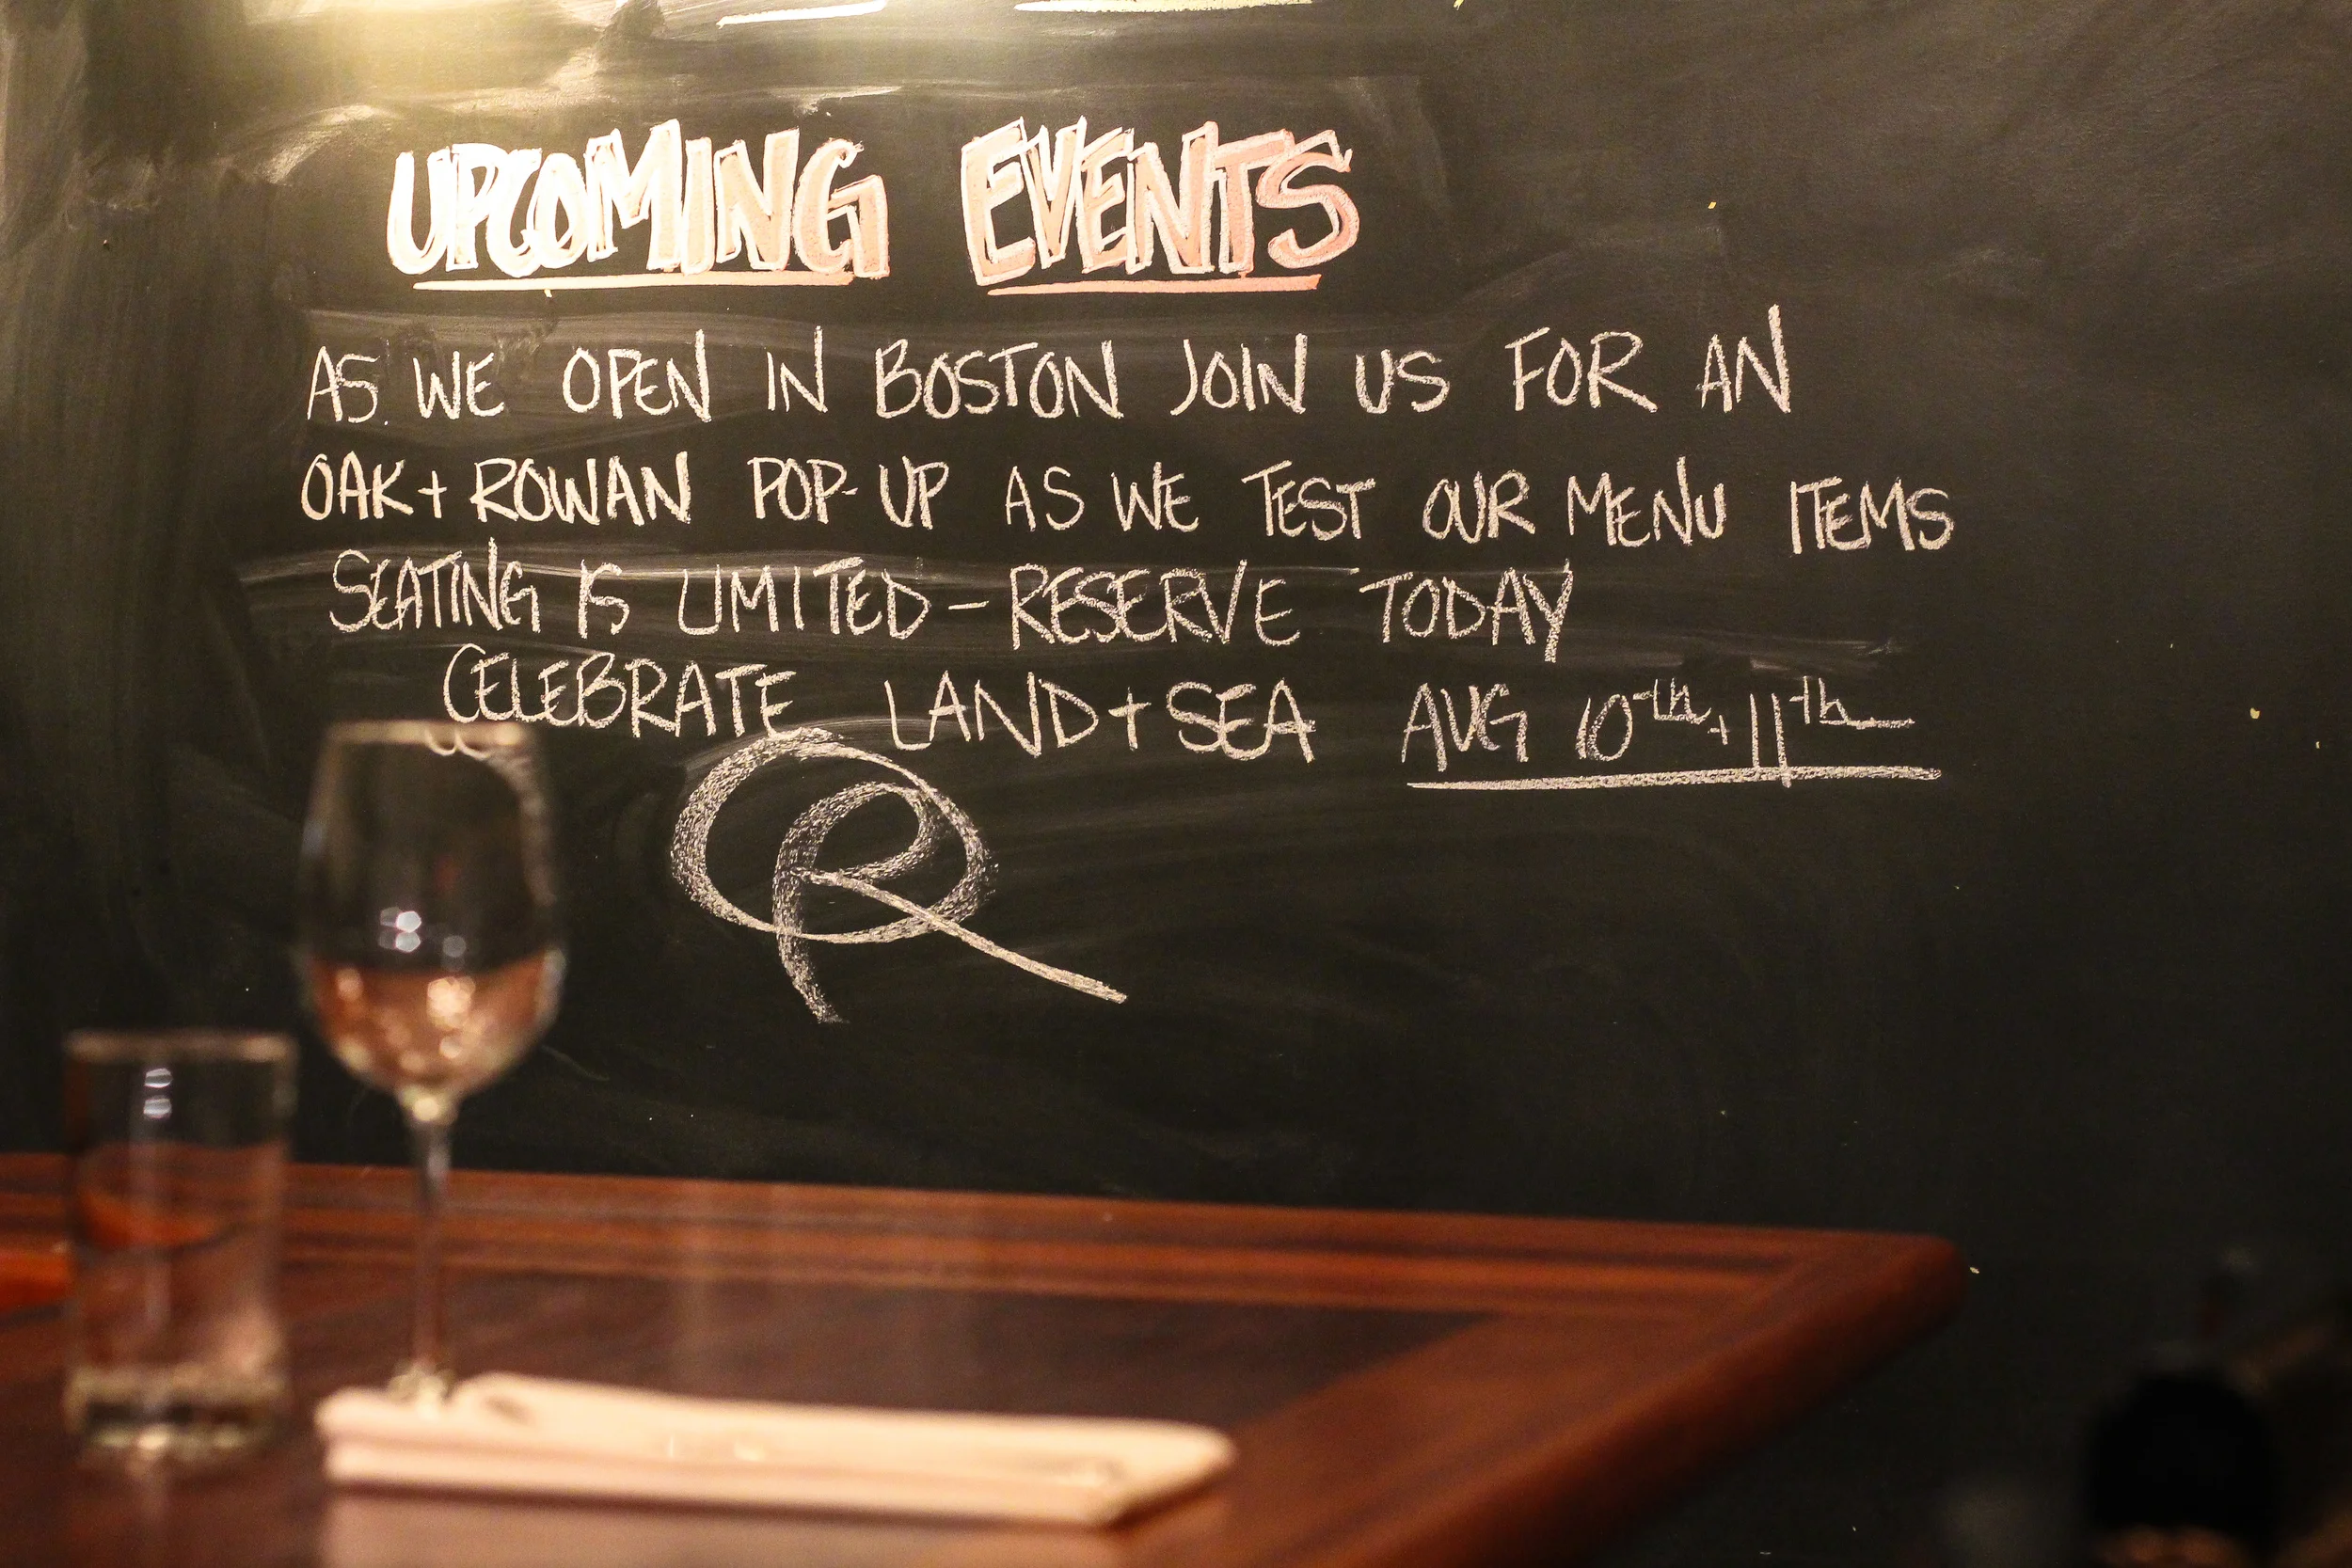 UPCOMING EVENTS
AS WE OPEN IN BOSTON JOIN US FOR AN
OAK + ROWAN POP-UP AS WE TEST OUR MENU ITEMS
SEATING IS LIMITED - RESERVE TODAY
CELEBRATE LAND + SEA AUG 10th + 11th
R